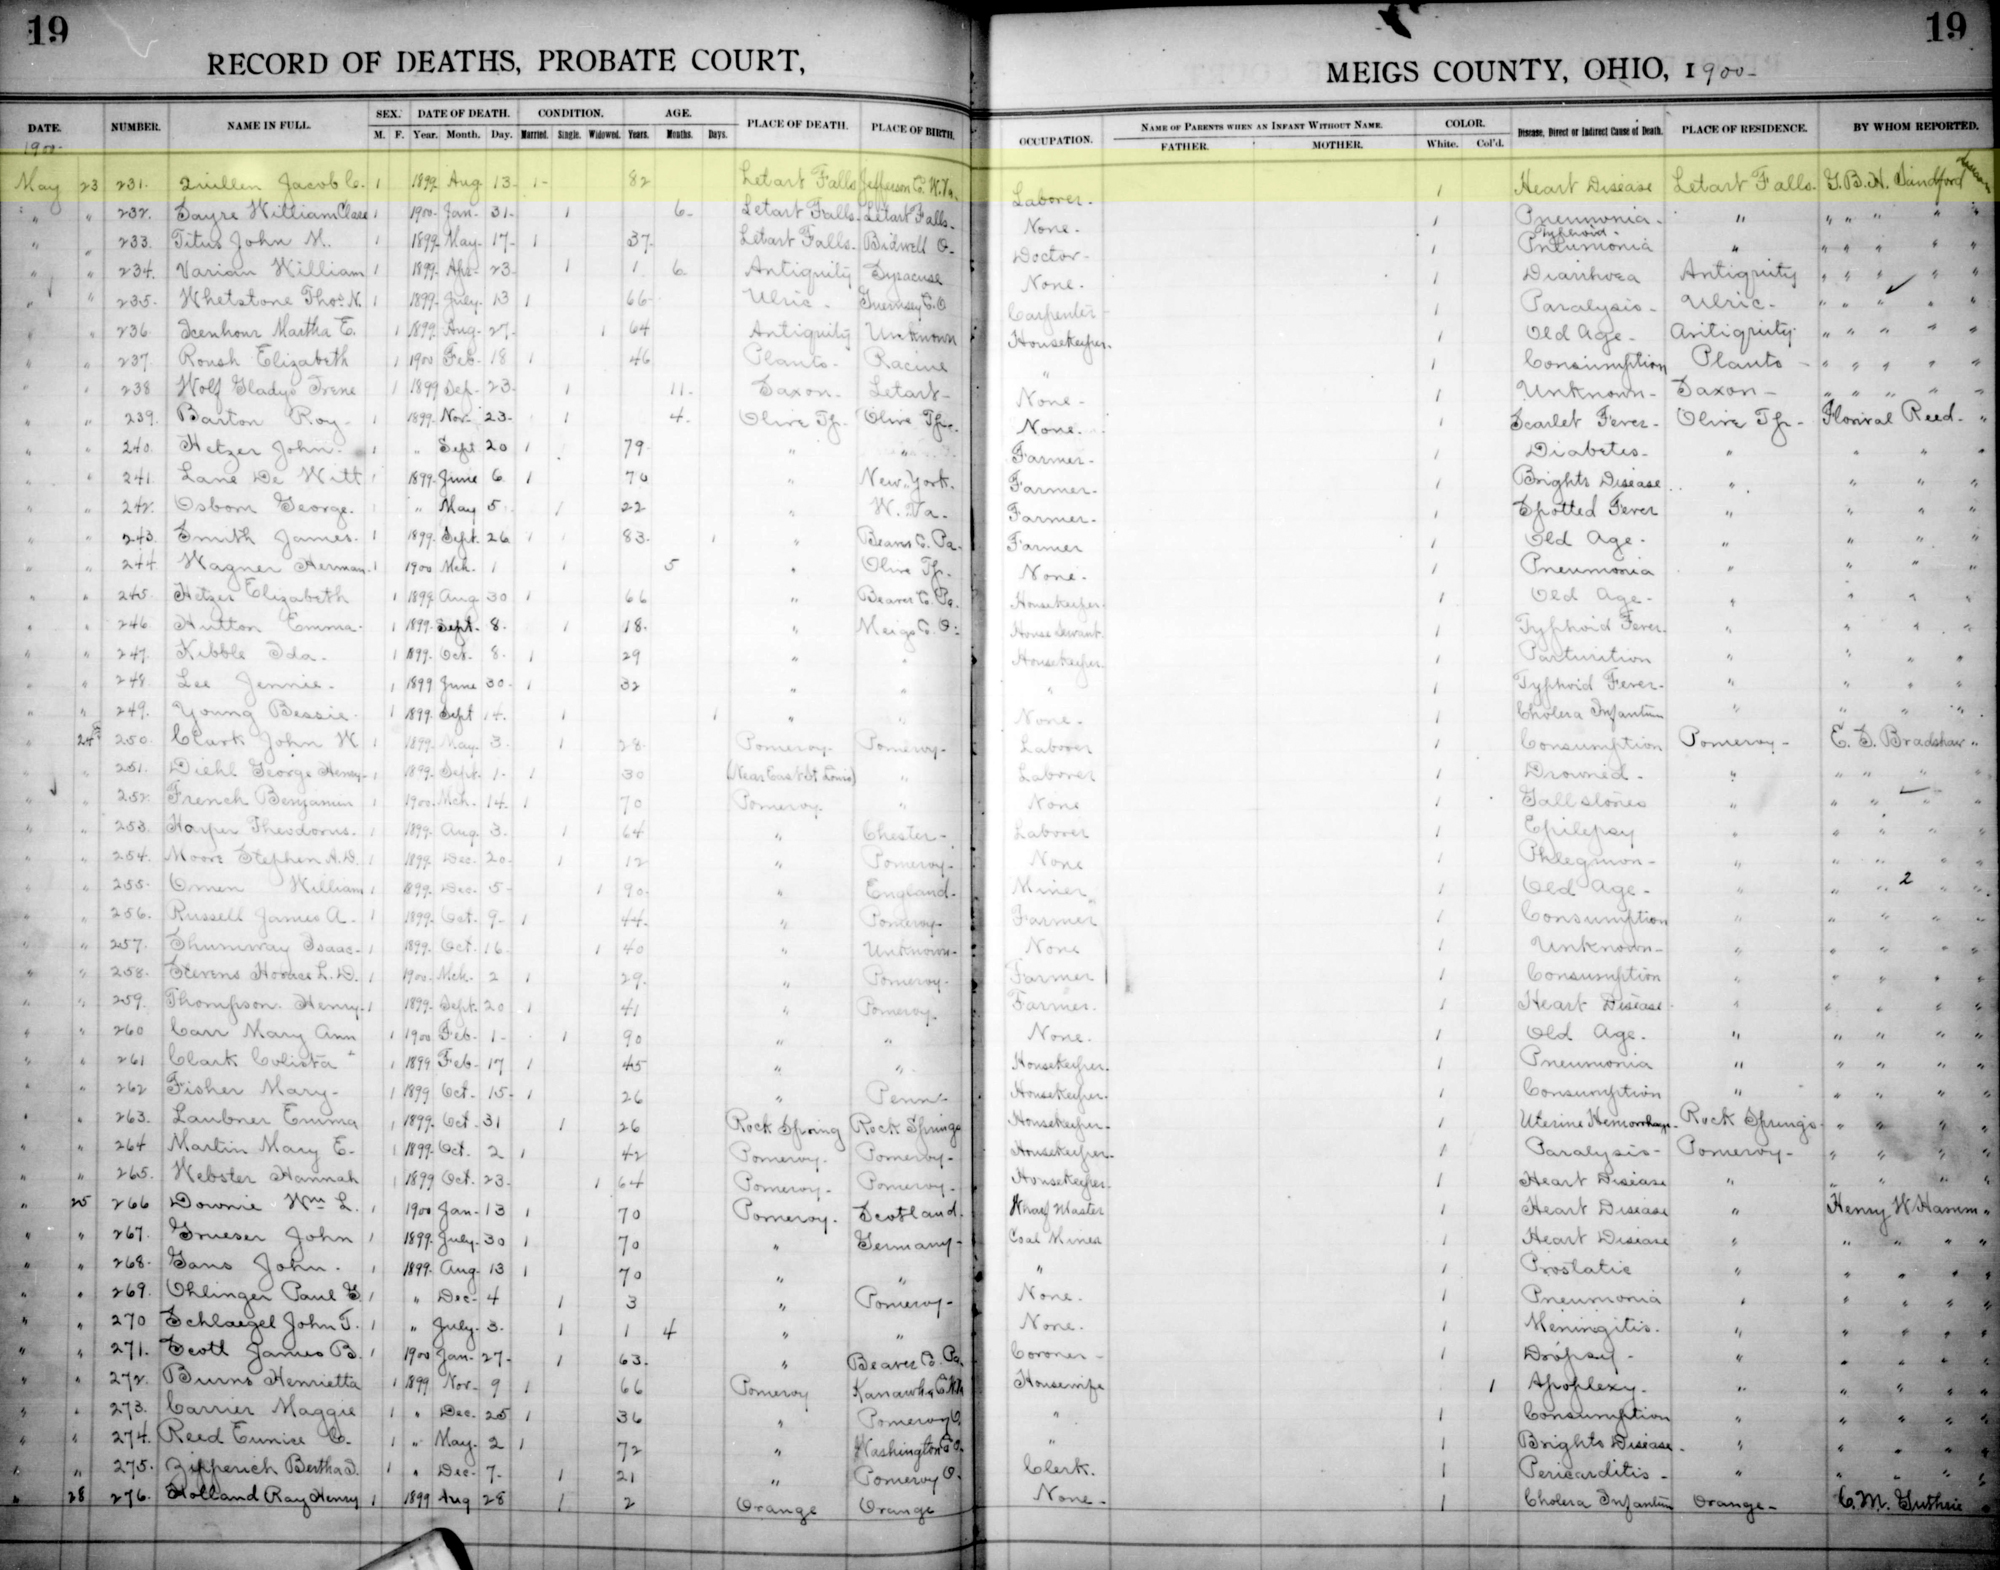 19
19
RECORD OF DEATHS, PROBATE COURT,
MEIGS COUNTY, OHIO, 1900-
DATE. NUMBER. NAME IN FULL. SEX. DATE OF DEATH. CONDITION. AGE. PLACE OF DEATH. PLACE OF BIRTH. OCCUPATION. NAME OF PARENTS WHEN AN INFANT WITHOUT NAME. COLOR. Disease, Direct or Indirect Cause of Death. PLACE OF RESIDENCE. BY WHOM REPORTED.
M. F. Year. Month. Day. Married. Single. Widowed. Years. Months. Days. FATHER. MOTHER. White. Col'd.
1900-
May 23 231. Quillen Jacob C. 1 1899 Aug 13- 1- 82 Letart Falls Jefferson Co. W. Va. Laborer- 1 Heart Disease Letart Falls. G. B. H. Sandford
" " 232. Sayre William 1 1900- Jan- 31- 1 6- Letart Falls- Letart Falls- None- 1 Pneumonia- " " " " " "
" " 233. Titus John M. 1 1899- May- 17- 1 37- Letart Falls- Bidwell O- Doctor- 1 Typhoid- Pneumonia " " " " " "
" " 234. Varian William 1 1899- Apr- 23- 1 1 6 Antiquity Syracuse None- 1 Diarrhoea Antiquity " " " " "
" " 235- Whetstone Thos. N. 1 1899- July- 13 1 66- Ulric- Guernsey Co. O Carpenter- 1 Paralysis- Ulric- " " " " "
" " 236 Icenhour Martha E. 1 1899- Aug- 27- 1 64 Antiquity Unknown Housekeeper- 1 Old Age- Antiquity- " " " " "
" " 237. Roush Elizabeth 1 1900 Feb- 18 1 46 Plants- Racine " 1 Consumption Plants- " " " " "
" " 238 Wolf Gladys Irene 1 1899 Sep- 23- 1 11- Saxon- Letart- None- 1 Unknown- Saxon- " " " " "
" " 239. Barton Roy- 1 1899- Nov- 23- 1 4- Olive Tp- Olive Tp- None- 1 Scarlet Fever- Olive Tp- Florival Reed- "
" " 240. Hetzer John- 1 " Sept 20 1 79- " " Farmer- 1 Diabetes- " " " "
" " 241. Lane De Witt 1 1899- June 6 1 70 " New York. Farmer- 1 Brights Disease " " " "
" " 242. Osborn George. 1 " May 5 1 22 " W. Va- Farmer- 1 Spotted Fever " " " "
" " 243. Smith James- 1 1899- Sept. 26 1 83- 1 " Beaver Co. Pa. Farmer 1 Old Age- " " " "
" " 244 Wagner Herman- 1 1900 Mch- 1 1 5 " Olive Tp- None- 1 Pneumonia " " " "
" " 245- Hetzer Elizabeth 1 1899- Aug 30 1 66 " Beaver Co. Pa. Housekeeper- 1 Old Age- " " " "
" " 246. Hutton Emma- 1 1899- Sept- 8- 1 18- " Meigs Co. O- House Servant- 1 Typhoid Fever- " " " "
" " 247. Kibble Ida- 1 1899- Oct- 8- 1 29 " " Housekeeper 1 Parturition " " " "
" " 248. Lee Jennie- 1 1899 June 30- 1 32 " " " 1 Typhoid Fever- " " " "
" " 249. Young Bessie- 1 1899- Sept 14- 1 1 " " None- 1 Cholera Infantum " " " "
" 24 250. Clark John W 1 1899- May- 3- 1 28- Pomeroy- Pomeroy- Laborer 1 Consumption Pomeroy- E. S. Bradshaw "
" " 251. Diehl George Henry- 1 1899- Sept- 1- 1 30 (Near East St Louis) " Laborer 1 Drowned- " " " " "
" " 252- French Benjamin 1 1900- Mch- 14- 1 70 Pomeroy- " None 1 Gallstones " " " " "
" " 253. Harper Theodorus- 1 1899- Aug. 3- 1 64 " Chester- Laborer 1 Epilepsy " " " " "
" " 254. Moore Stephen A. D. 1 1899- Dec- 20- 1 12 " Pomeroy- None 1 Phlegmon- " " " " "
" " 255- Omen William 1 1899- Dec- 5- 1 90- " England- Miner 1 Old Age- " " " 2 " "
" " 256. Russell James A- 1 1899- Oct- 9- 1 44- " Pomeroy- Farmer 1 Consumption " " " " "
" " 257. Shumway Isaac- 1 1899- Oct- 16- 1 40 " Unknown- None 1 Unknown- " " " " "
" " 258. Stevens Horace L. D. 1 1900- Mch- 2 1 29- " Pomeroy- Farmer 1 Consumption " " " " "
" " 259. Thompson Henry- 1 1899- Sept- 20 1 41 " Pomeroy- Farmer- 1 Heart Disease- " " " " "
" " 260 Carr Mary Ann 1 1900 Feb- 1- 1 90 " " None- 1 Old Age- " " " " "
" " 261 Clark Colista 1 1899 Feb- 17 1 45 " " Housekeeper- 1 Pneumonia " " " " "
" " 262 Fisher Mary- 1 1899 Oct- 15- 1 26 " Penn- Housekeeper- 1 Consumption " " " " "
" " 263. Laubner Emma 1 1899- Oct 31 1 26 Rock Spring Rock Springs Housekeeper- 1 Uterine Hemorrhage- Rock Springs- " " " "
" " 264 Martin Mary E- 1 1899- Oct- 2 1 42 Pomeroy- Pomeroy- Housekeeper- 1 Paralysis- Pomeroy- " " " "
" " 265. Webster Hannah 1 1899 Oct- 23- 1 64 Pomeroy- Pomeroy- Housekeeper- 1 Heart Disease " " " " "
" 25 266 Downie Wm L. 1 1900 Jan- 13 1 70 Pomeroy- Scotland. Wharf Master 1 Heart Disease " Henry W Hamm "
" " 267. Grueser John 1 1899- July- 30 1 70 " Germany- Coal Miner 1 Heart Disease " " " " "
" " 268- Gans John- 1 1899- Aug- 13 1 70 " " " 1 Prostatic " " " " "
" " 269. Ohlinger Paul G. 1 " Dec- 4 1 3 " Pomeroy- None- 1 Pneumonia " " " " "
" " 270 Schlaegel John T. 1 " July- 3- 1 1 4 " " None- 1 Meningitis- " " " " "
" " 271. Scott James B. 1 1900 Jan- 27- 1 63- " Beaver Co. Pa. Coroner- 1 Dropsy- " " " " "
" " 272- Burns Henrietta 1 1899 Nov- 9 1 66 Pomeroy Kanawha Co. W. Va Housewife 1 Apoplexy- " " " " "
" " 273. Carrier Maggie 1 " Dec- 25 1 36 " Pomeroy O. " 1 Consumption " " " " "
" " 274. Reed Eunice C- 1 " May- 2 1 72 " Washington Co O. " 1 Brights Disease- " " " " "
" " 275- Zipperich Bertha 1 " Dec- 7- 1 21 " Pomeroy O. Clerk. 1 Pericarditis- " " " " "
" 28 276. Holland Ray Henry 1 1899 Aug 28 1 2 Orange Orange None- 1 Cholera Infantum Orange- C. M. Guthrie "